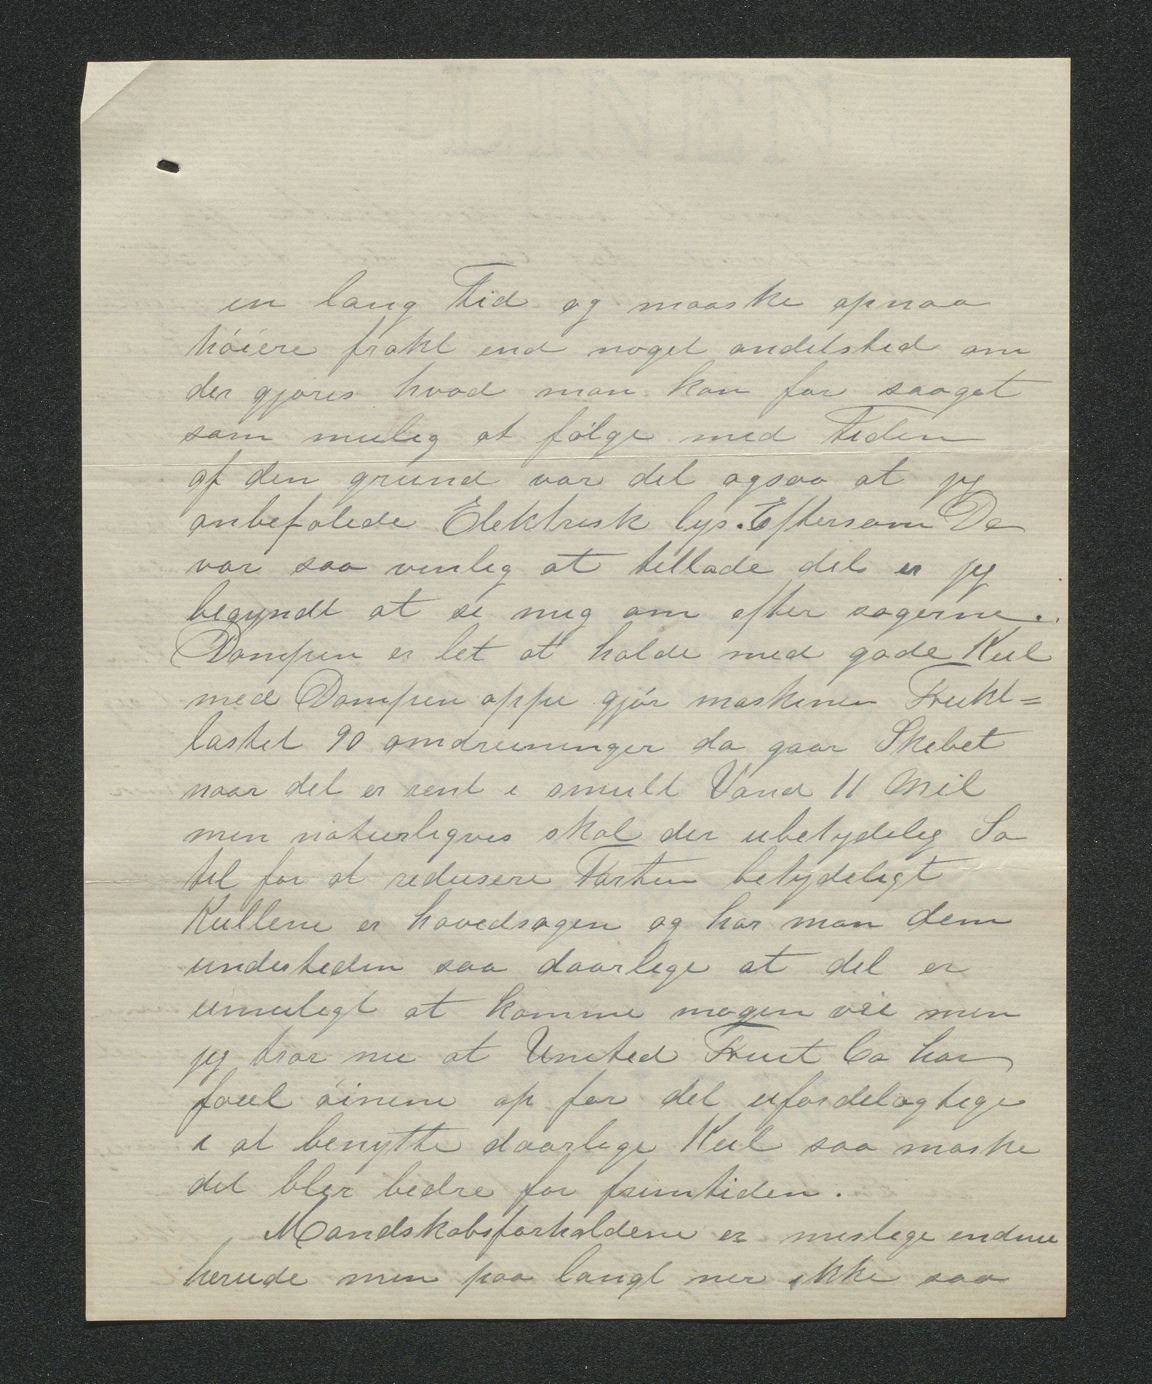 en lang Tid og maaske opnaa
höiere frakt end noget andetsted om
der gjøres hvad man kan for saaget
som mulig at følge med Tiden
af den grund var det ogsaa at jeg
anbefalede Elektrisk lys. Eftersom De
var saa venlig at tillade det er jeg
begyndt at se mig om efter sagerne.
Dampen er let at holde med gode Kul
med Dampen oppe gjör maskinen Frukt=
lastet 90 omdreininger da gaar Skibet
naar det er rent i smult Vand 11 Mil
men naturligvis skal der ubetydelig Sø
til for at redusere Farten betydeligt
Kullene er hovedsagen og har man dem
undertiden saa daarlige at det er
umuligt at komme nogen vei men
jeg tror nu at United Fruit Co har
faaet öinene op for det ufordelagtige
i at benytte daarlige Kul saa maske
det bler bedre for fremtiden.
Mandskabsforholdene er mislige endnu
herude men paa langt nær ikke saa